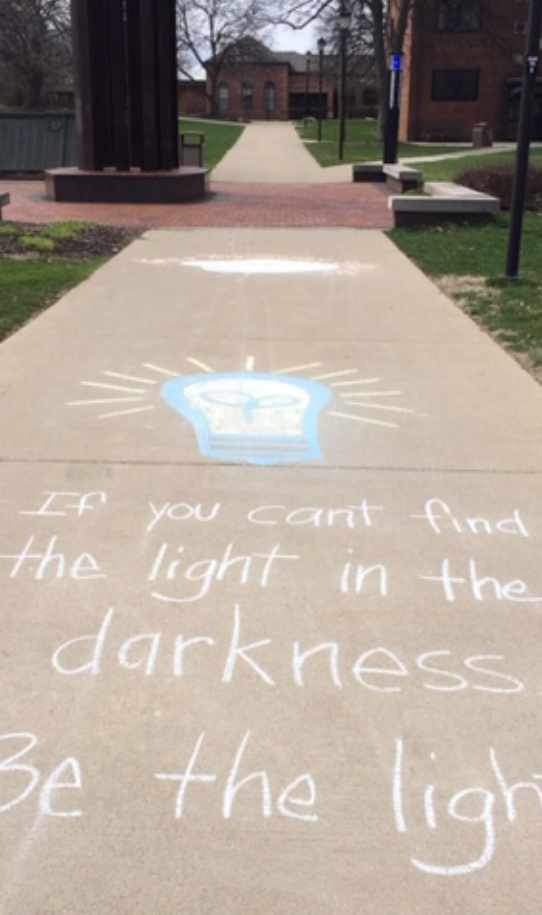 If you cant find
the light in the
darkness
Be the light